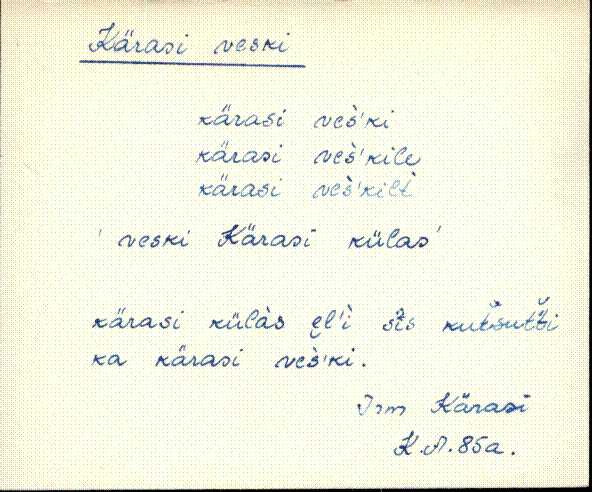 Kärasi veski
kärasi veš̀'ki
kärasi veš̀'kile
kärasi veš̀'kilt̀
' veski Kärasi külas'
kärasi külàs
ka kärasi veš̀'ki.
Kärasi
K.A. 85a.